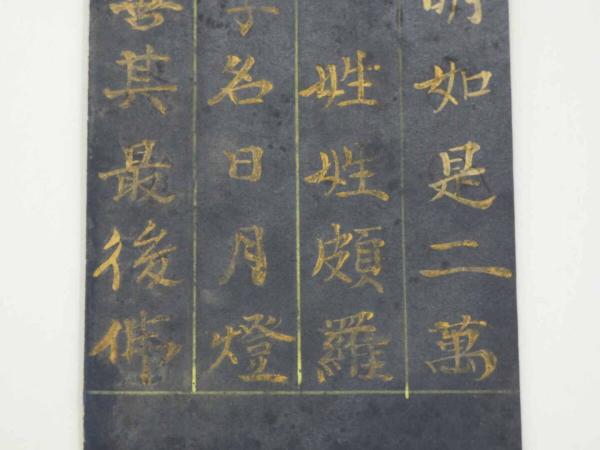 明如是二萬
姓姓頗羅
字名日月燈
善其最後佛